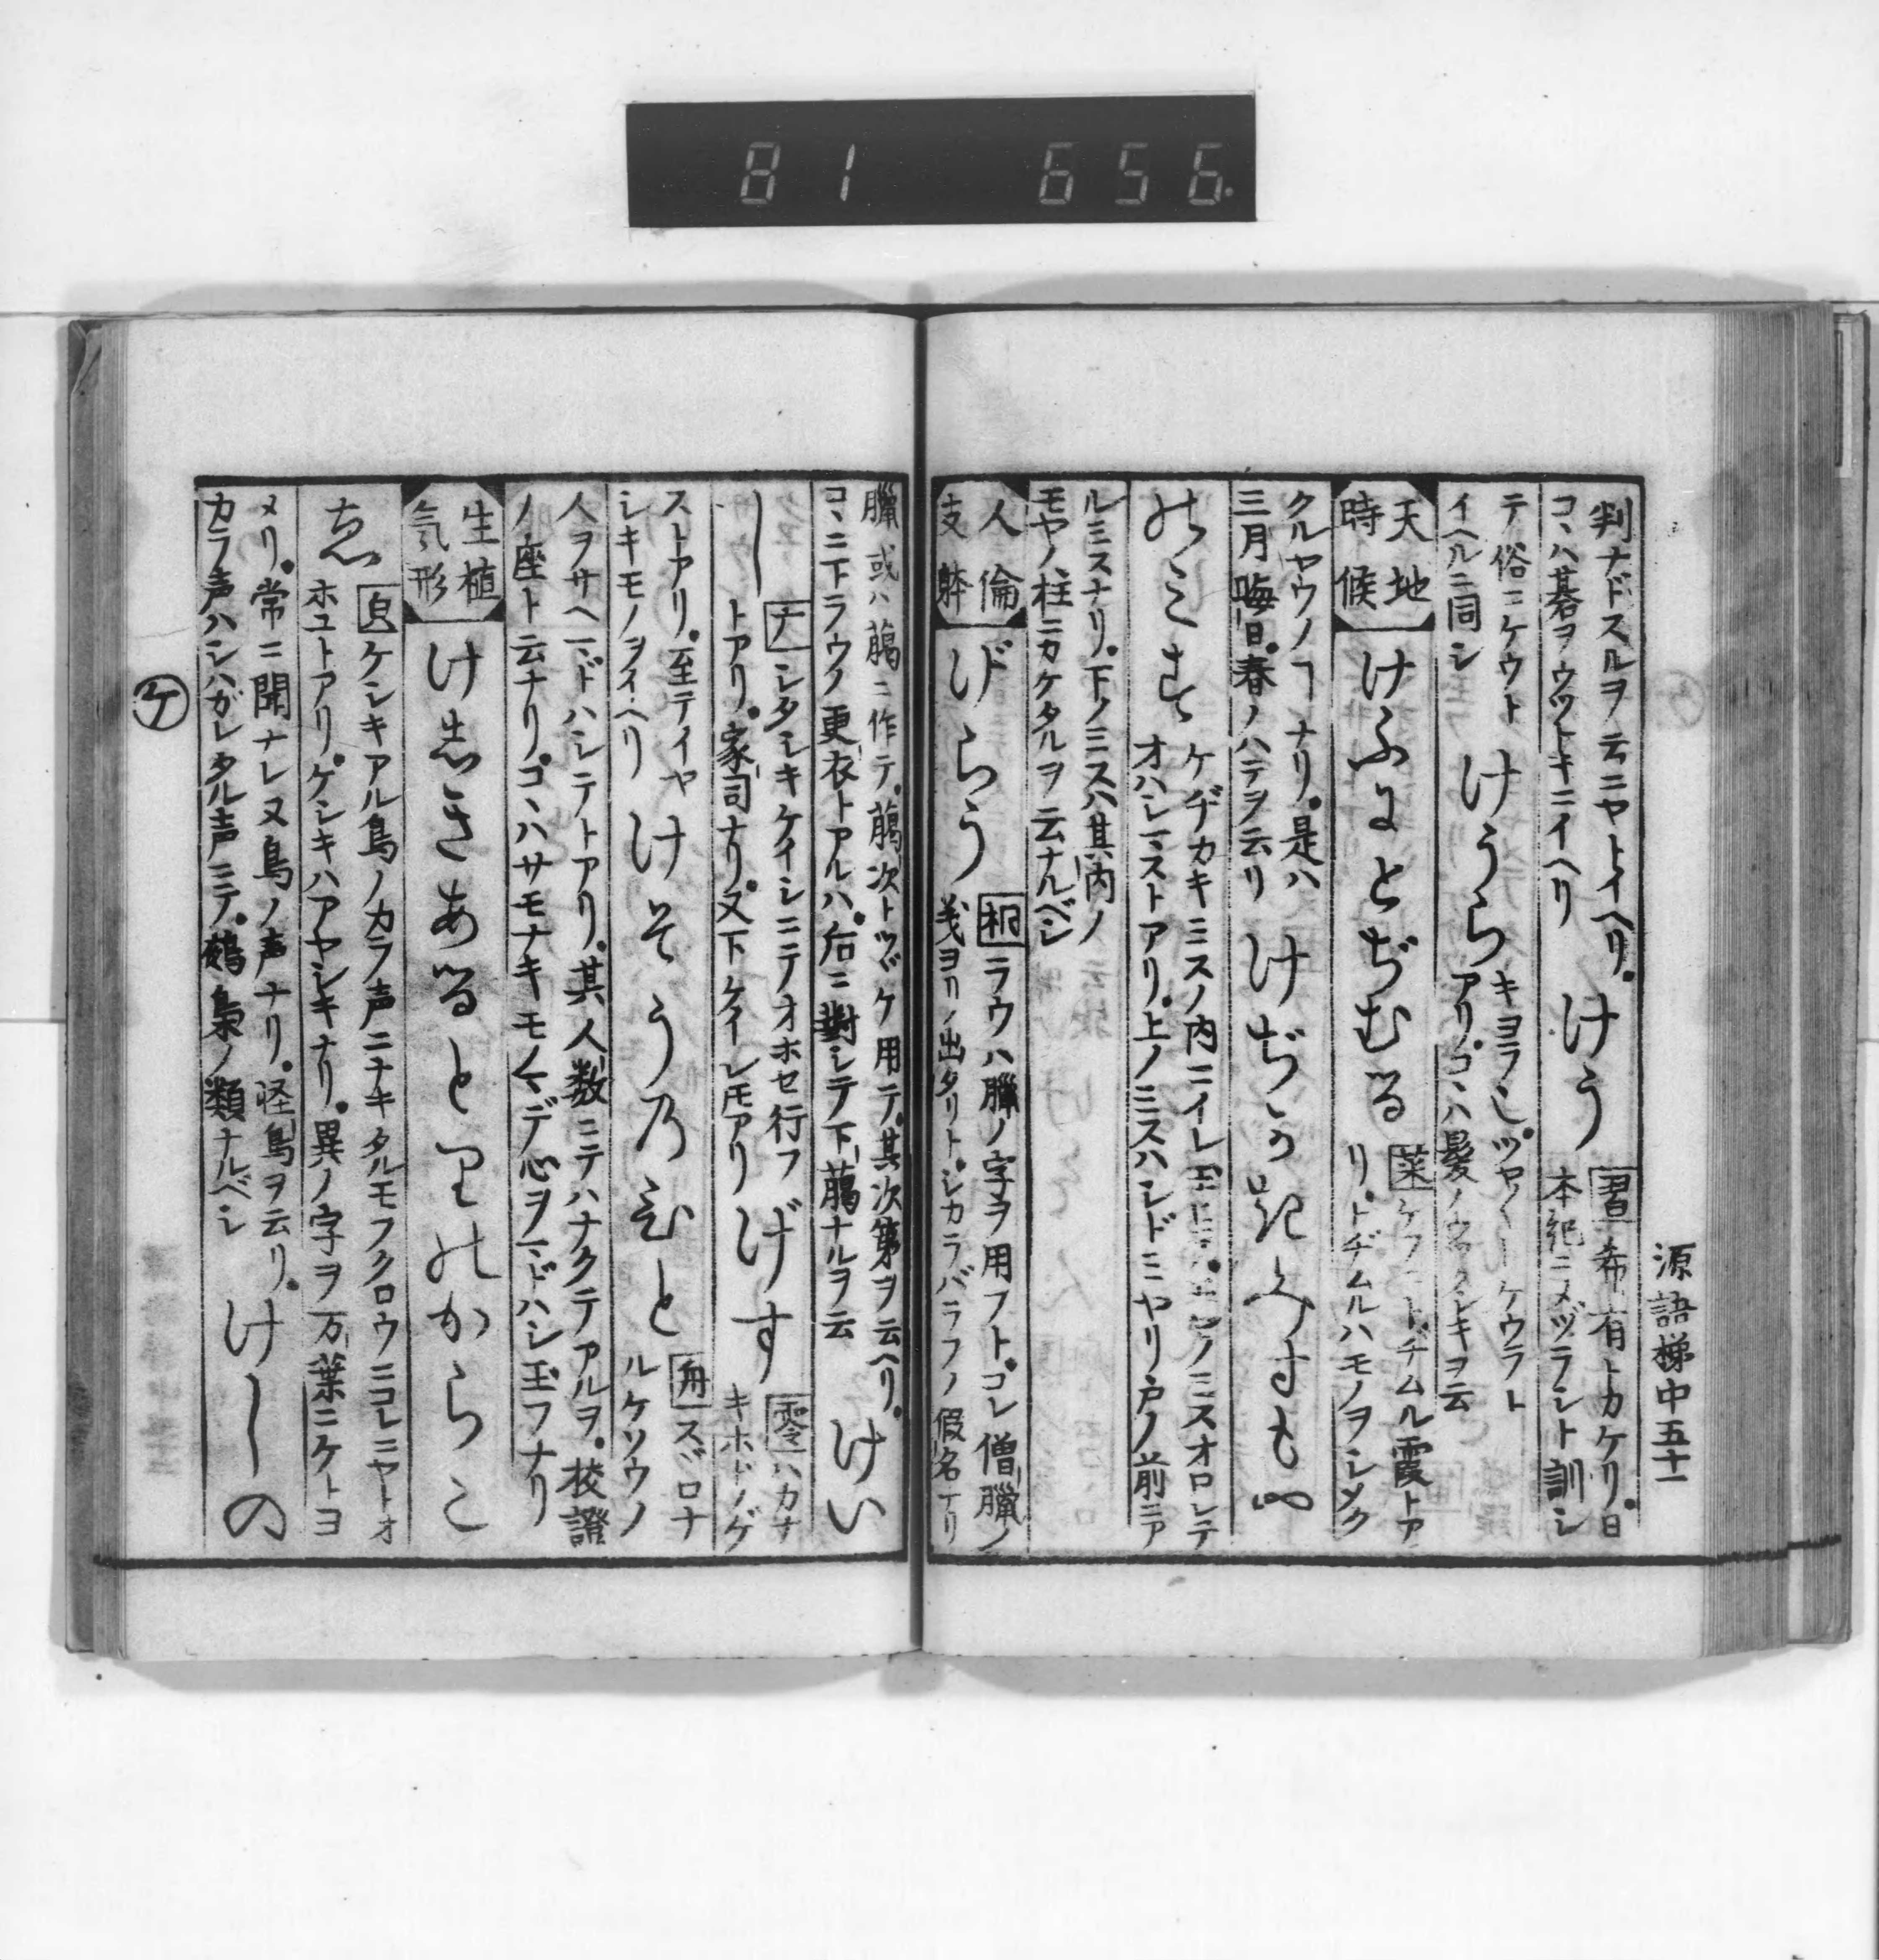 81 656
源語梯中五十一
判ナドスルヲ云ニヤトイヘリ。けう 習 希有トカケリ。日
コヽハ碁ヲウツトキニイヘリ 本紀ニメヅラシト訓シ
テ俗ニケウト けうら キヨラシ。ツヤ〱ケウラト
イヘルニ同シ アリ。コヽハ髪ノウツクシキヲ云
天地
時候
けふにとぢむる 葉 ケフニトヂムル霞トア
リ。トヂムルハモノヲシメク
クルヤウノヿナリ。是ハ
三月晦日。春ノハテヲ云リ
けぢかきみすも
のこま ケヂカキミスノ内ニイレ
オハシマストアリ。上ノミスハシドミヤリ戸ノ前ニア
ルミスナリ。下ノミスハ其内ノ
モヤノ柱ニカケタルヲ云ナルベシ
人倫
支体
げらう 桐 ラウハ臈ノ字ヲ用フト。コレ僧臈ノ
義ヨリノ出タリト。シカラバラフノ假名ナリ
臈或ハ﨟ニ作テ。﨟次トツヾケ用テ。其次第ヲ云ヘリ。けい
コヽニ下ラウノ更衣トアルハ。后ニ對シテ下﨟ナルヲ云
し ナ シタシキケイシニテオホセ行フ
トアリ。家司ナリ。又下ケイシモアリ
げす 零 ハカナ
キホドノゲ
ストアリ。至テイヤ
シキモノヲイヘリ
けそう乃ひと 舟 スヾロナ
ルケソウノ
人ヲサヘマドハシテトアリ。其人数ニテハナクテアルヲ。校證
ノ座ト云ナリ。コヽハサモナキモノマデ心ヲマドハシ玉フナリ
生植
気形
け志きあるとりのからこ
ゑ 㒵 ケシキアル鳥ノカラ声ニナキタルモフクロウニコレニヤトオ
ホユトアリ。ケシキハアヤシキナリ。異ノ字ヲ万葉ニケトヨ
メリ。常ニ聞ナレヌ鳥ノ声ナリ。怪鳥ヲ云リ。けしの
カラ声ハシハガレタル声ニテ。鵂梟ノ類ナルベシ
ケ